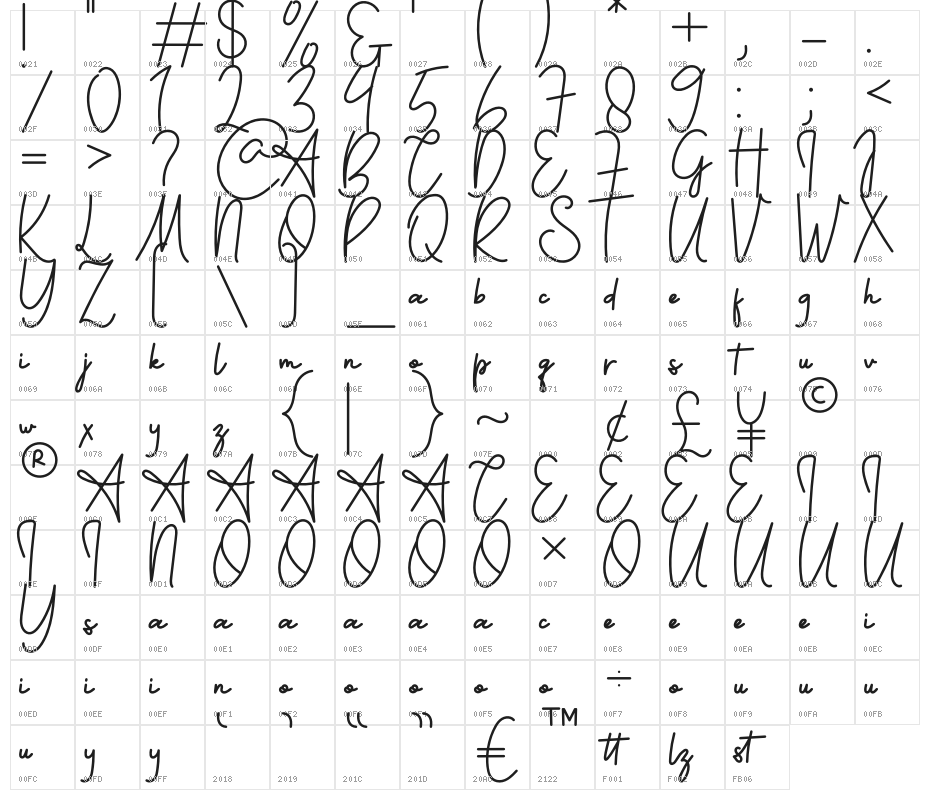 ! " # $ % & ' ( ) * + , - .
0021 0022 0023 0024 0025 0026 0027 0028 0029 002A 002B 002C 002D 002E
/ 0 1 2 3 4 5 6 7 8 9 : ; <
002F 0030 0031 0032 0033 0034 0035 0036 0037 0038 0039 003A 003B 003C
= > ? @ A B C D E F G H I J
003D 003E 003F 0040 0041 0042 0043 0044 0045 0046 0047 0048 0049 004A
K L M N O P Q R S T U V W X
004B 004C 004D 004E 004F 0050 0051 0052 0053 0054 0055 0056 0057 0058
Y Z [ \ ] _ a b c d e f g h
0059 005A 005B 005C 005D 005F 0061 0062 0063 0064 0065 0066 0067 0068
i j k l m n o p q r s t u v
0069 006A 006B 006C 006D 006E 006F 0070 0071 0072 0073 0074 0075 0076
w x y z { | } ~ ¢ £ ¥ ©
0077 0078 0079 007A 007B 007C 007D 007E 00A0 00A2 00A3 00A5 00A9
® A A A A A A C E E E E I I
00AE 00C0 00C1 00C2 00C3 00C4 00C5 00C7 00C8 00C9 00CA 00CB 00CC 00CD
I I N O O O O O × O U U U U
00CE 00CF 00D1 00D2 00D3 00D4 00D5 00D6 00D7 00D8 00D9 00DA 00DB 00DC
Y s a a a a a a c e e e e i
00DD 00DF 00E0 00E1 00E2 00E3 00E4 00E5 00E7 00E8 00E9 00EA 00EB 00EC
i i i n o o o o o ÷ o u u u
00ED 00EE 00EF 00F1 00F2 00F3 00F4 00F5 00F6 00F7 00F8 00F9 00FA 00FB
u y y ‘ ’ “ ” € ™ tt lz st
00FC 00FD 00FF 2018 2019 201C 201D 20AC 2122 F001 F002 FB06